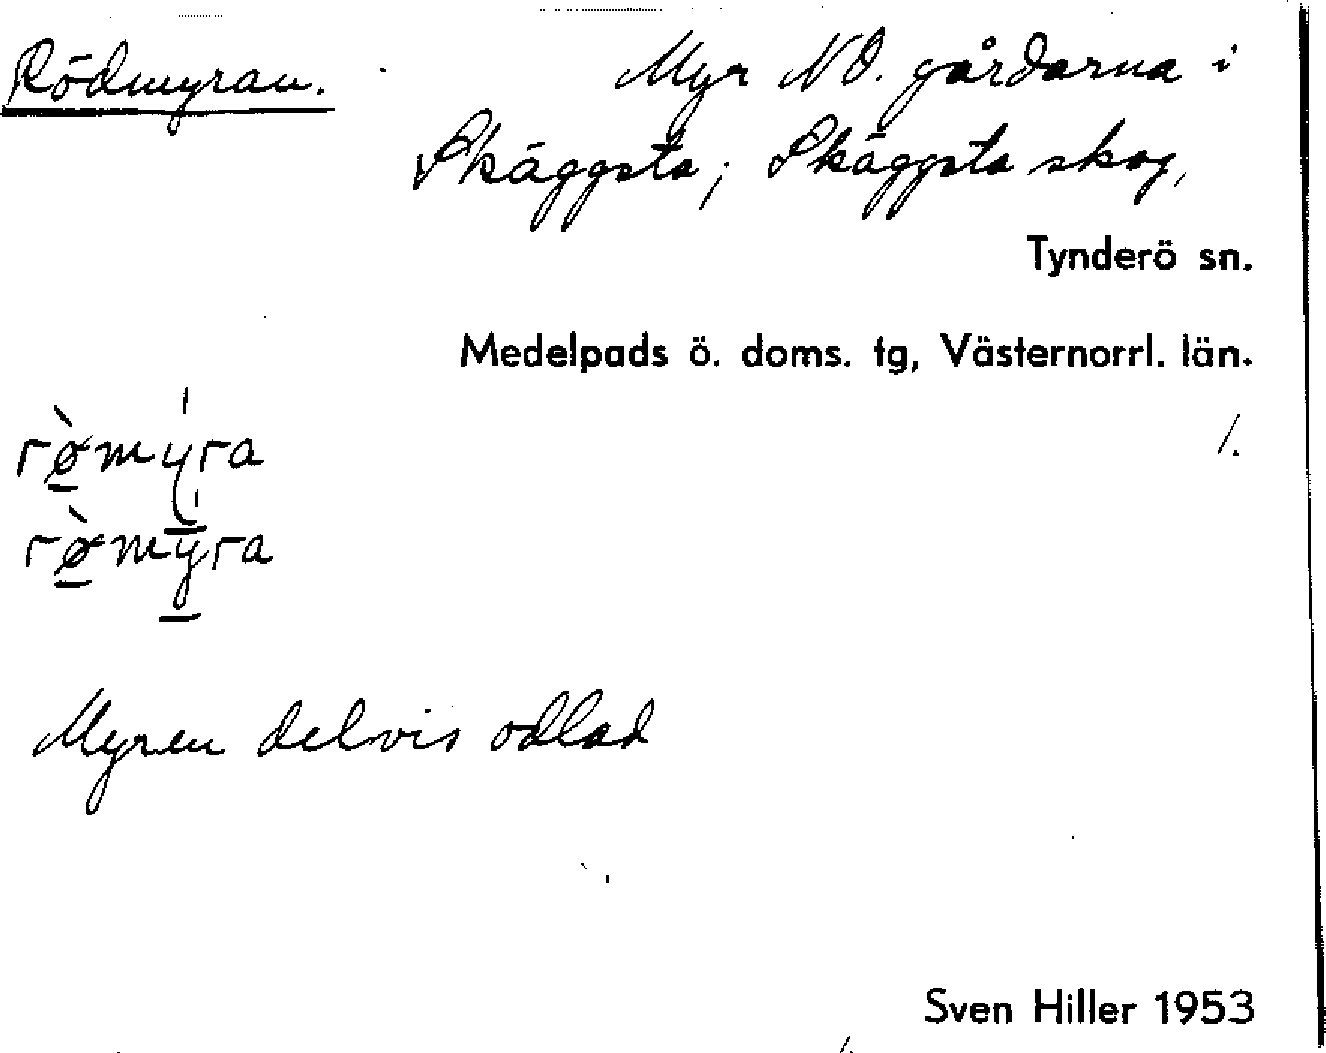 Rödmyran.
Myr NO. gårdarna i
Skäggsta; Skäggsta skog,
Tynderö sn.
Medelpads ö. doms. tg, Västernorrl. län.
rø̀mýra
1.
rø̀mýra
Myren delvis odlad
Sven Hiller 1953